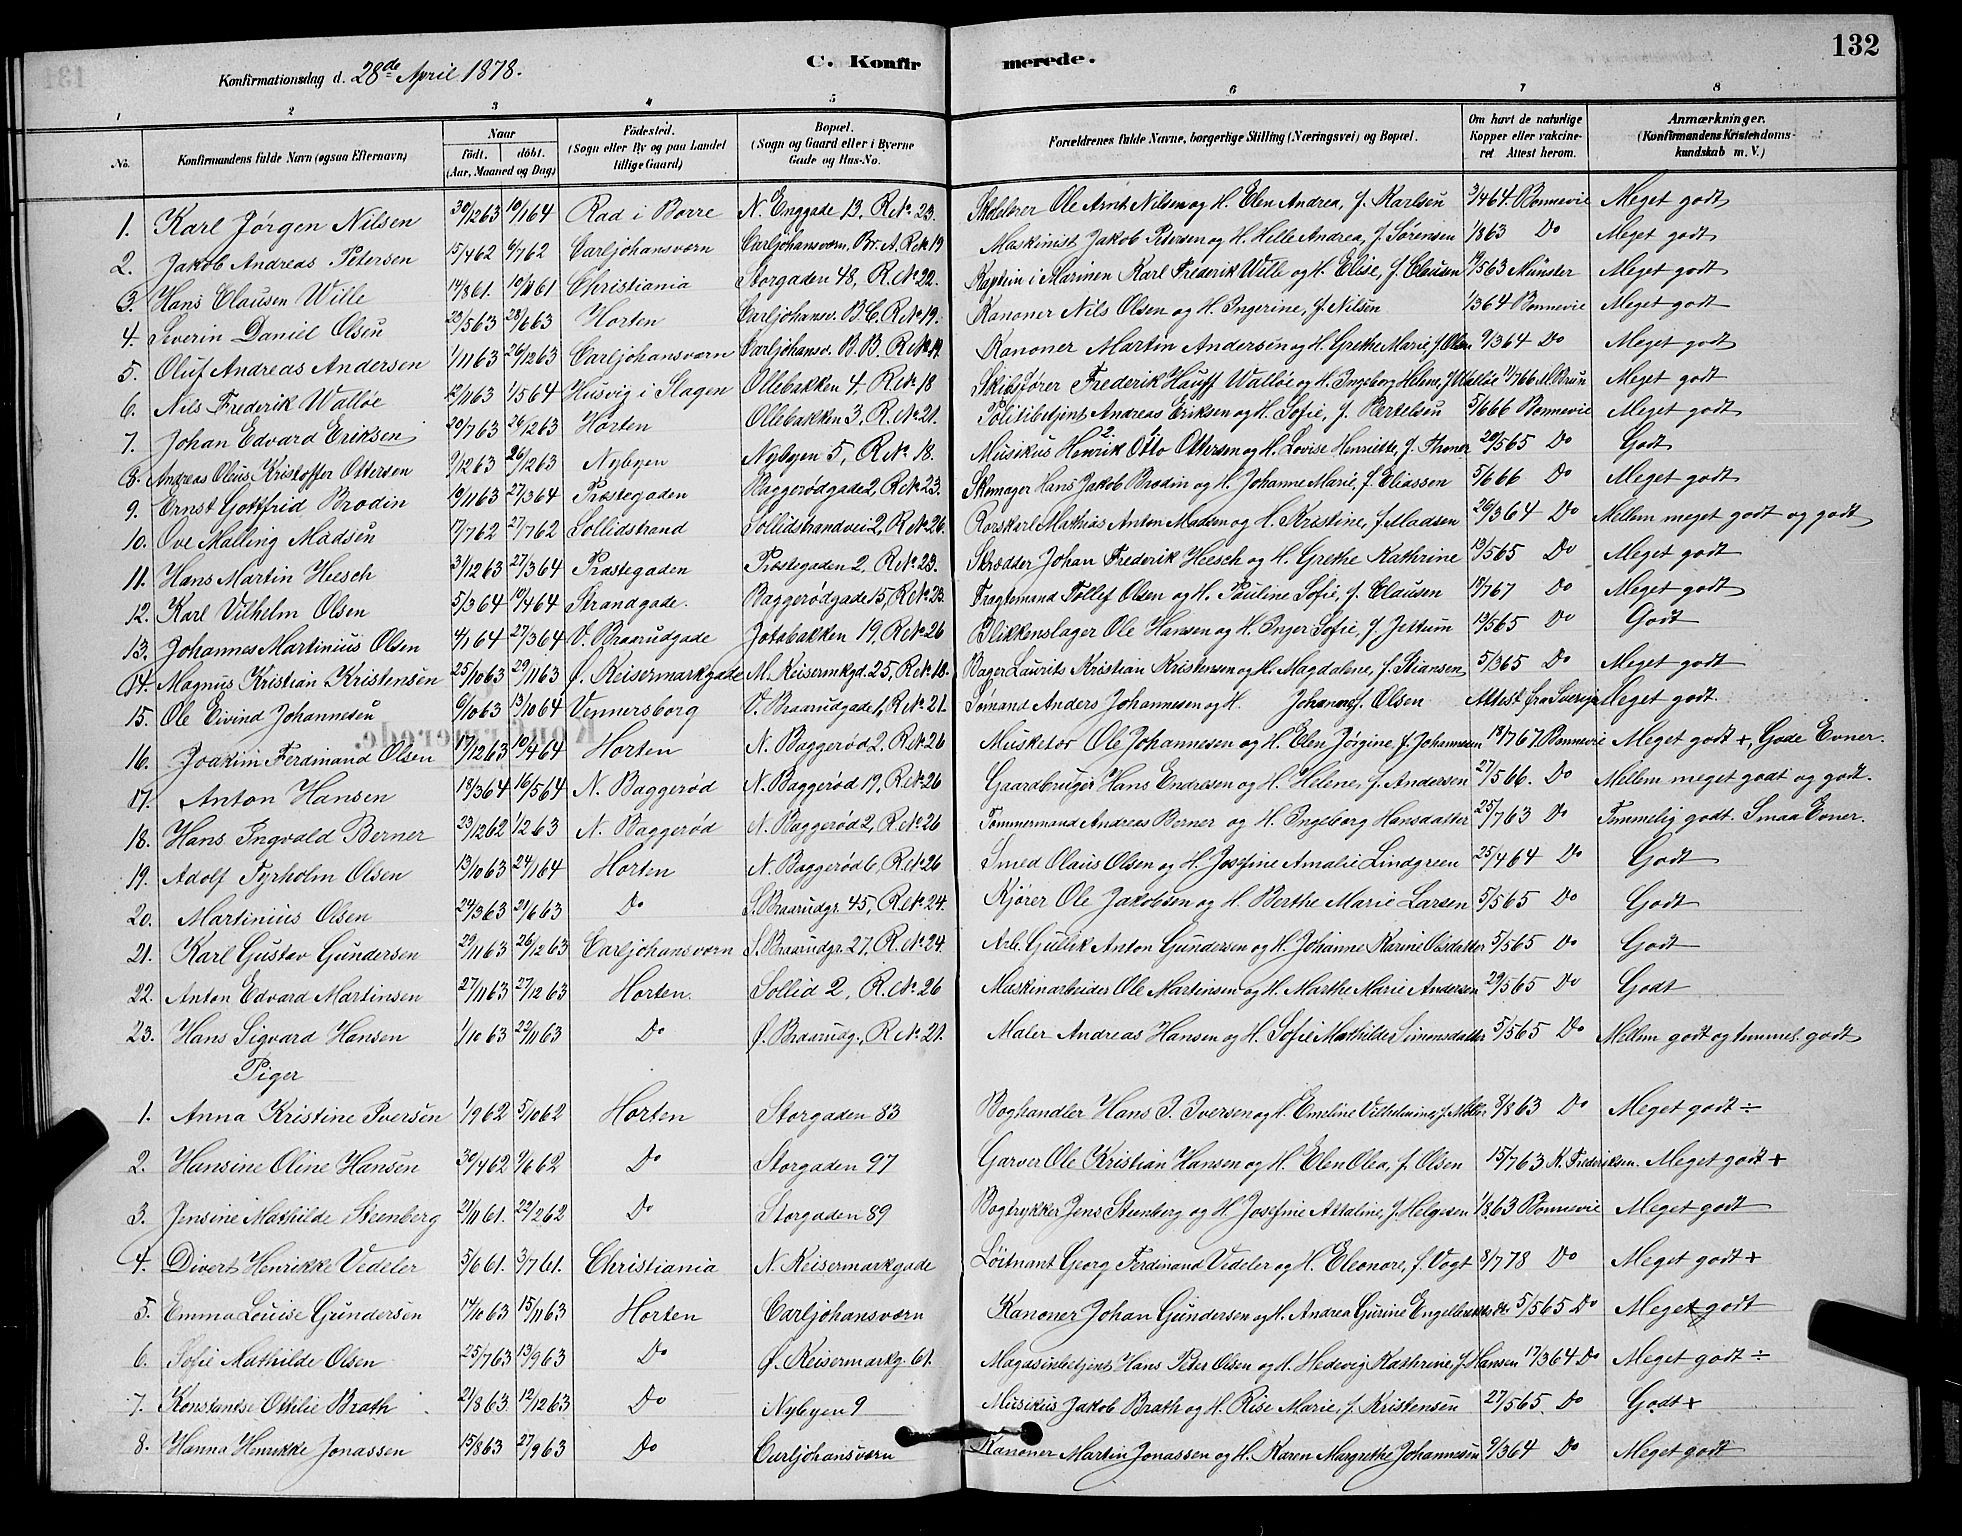 132
Konfirmationsdag d. 28de April 1878.
C. Konfirmerede.
1 2 3 4 5 6 7 8
No. Konfirmandens fulde Navn (ogsaa Efternavn) Naar født. døbt. (Aar, Maaned og Dag) Fødested. (Sogn eller By og paa Landet tillige Gaard) Bopæl. (Sogn og Gaard eller i Byerne Gade og Hus-No. Forældrenes fulde Navne, borgerlige Stilling (Næringsvei) og Bopæl. Om havt de naturlige Kopper eller vakcineret Attest herom. Anmærkninger. (Konfirmandens Kristendomskundskab m. V.)
1. Karl Jørgen Nilsen 30/12 63 10/1 64 Rad i Borre N. Enggade 13, R.No. 23. Skolelærer Ole Arnt Nilsen og H. Elen Andrea, f. Karlsen 3/4 64 Bonnevie Meget godt
2. Jakob Andreas Petersen 15/4 62 6/7 62 Carljohansværn Carljohansværn. Br. A. R.No. 19 Maskinist Jakob Petersen og H. Helle Andrea, f. Sørensen 1/8 63 Do Meget godt
3. Hans Clausen Wille 14/8 61. 10/11 61 Christiania Storgaden 48, R.No. 22. Kaptein i Marinen Karl Frederik Wille og H. Elise, f. Clausen 19/5 63 Münster Meget godt
4. Severin Daniel Olsen 23/5 63 28/6 63 Horten Carljohansv. B.C. R.No. 19. Kanoner Nils Olsen og H. Ingerine, f. Nilsen 1/3 64 Bonnevie Meget godt
5. Oluf Andreas Andersen 1/11 63 26/12 63 Carljohansværn Carljohansv. B.B. R.No. 19. Kanoner Martin Andersen og H. Grethe Marie, f. Olsen 9/3 64 Do Meget godt
6. Nils Frederik Walløe 12/11 63 1/5 64 Husvig i Slagen Ollebakken 4, R.No. 18 Skibsfører Frederik Hauff Walløe og H. Ingeborg Helene, f. Walløe 11/7 66 M. Bruun Meget godt
7. Johan Edvard Eriksen 20/7 63 26/12 63 Horten Ollebakken 3, R.No. 21. Politibetjent Andreas Eriksen og H. Sofie, f. Bertelsen 5/6 66 Bonnevie Meget godt
8. Andreas Olaus Kristoffer Ottersen 9/12 63 26/12 63 Nybyen Nybyen 5, R.No. 18. Musikus Henrik Otto Ottersen og H. Lovise Henriette, f. Thoner 20/5 65 Do Godt
9. Ernst Gottfrid Brodin 19/11 63 27/3 64 Præstegaden Baggerødgade 2, R.No. 23. Skomager Hans Jakob Brodin og H. Johanne Marie, f. Eliassen 5/6 66 Do Meget godt
10. Ove Malling Madsen 17/7 62 27/7 62 Sollidstrand Sollidstrandvei 2, R.No. 26. Rorskarl Mathias Anton Madsen og H. Kristine, f. Madsen 26/3 64 Do Mellem meget godt og godt
11. Hans Martin Heesch 31/12 63 27/3 64 Præstegaden Præstegaden 2, R.No. 23. Skrædder Johan Frederik Heesch og H. Grethe Kathrine 13/5 65 Do Meget godt
12. Karl Vilhelm Olsen 5/3 64 10/4 64 Strandgade. Baggerødgade 15, R.No. 23. Fragtemand Tollef Olsen og H. Pauline Sofie, f. Clausen 18/7 67 Do Meget godt
13. Johannes Martinius Olsen 4/1 64 27/3 64 V. Braarudgade Jotabakken 19. R.No. 26 Blikkenslager Ole Hansen og H. Inger Sofie, f. Jettum 13/5 65 Do Godt
14. Magnus Kristian Kristensen 25/10 63 29/11 63 Ø. Keisermarkgade M. Keisermkgd. 25, R.No. 18. Bager Laurits Kristian Kristensen og H. Magdalene, f. Stiansen 5/3 65 Do Meget godt
15. Ole Eivind Johannesen 6/10 63 13/10 64 Vennersborg V. Braarudgade 1, R.No. 21. Sømand Anders Johannesen og H. Johanne f. Olsen Attest fra Sverige Meget godt.
16. Joakim Ferdinand Olsen 17/12 63 10/4 64 Horten N. Baggerød 2, R.No. 26 Musketør Ole Johannesen og H. Elen Jørgine, f. Johannesen 18/7 67 Bonnevie Meget godt +, Gode Evner.
17. Anton Hansen 18/3 64 16/5 64 N. Baggerød N. Baggerød 19, R.No. 26 Gaardbruger Hans Endresen og H. Helene, f. Andersen 27/5 66. Do Mellem meget godt og godt.
18. Hans Ingvald Berner 23/12 62 1/2 63 N. Baggerød N. Baggerød 2, R.No. 26 Tømmermand Andreas Berner og H. Ingeborg Hansdatter 25/7 63 Do Temmelig godt. Smaa Evner.
19. Adolf Tyrholm Olsen 13/10 63 24/1 64 Horten N. Baggerød 6, R.No. 26 Smed Olaus Olsen og H. Josefine Amalie Lindgreen 25/4 64 Do Godt
20. Martinius Olsen 24/3 63 21/6 63 Do S. Braarudgr. 45, R.No. 24. Kjører Ole Jakobsen og H. Berthe Marie Larsen 5/5 65 Do Godt
21. Karl Gustav Gundersen 29/11 63 26/12 63 Carljohansværn S. Braarudgr. 27, R.No. 24. Arb. Gullik Anton Gundersen og H. Johanne Karine Olsdatter 5/5 65 Do Godt
22. Anton Edvard Martinsen 27/11 63 27/12 63 Horten. Sollid 2, R.No. 26 Maskinarbeider Ole Martinsen og H. Marthe Marie Andersen 29/5 65 Do Godt
23. Hans Sigvard Hansen 1/10 63 22/11 63 Do Ø. Braarudg., R.No. 21. Maler Andreas Hansen og H. Sofie Mathilde Simonsdatter 5/5 65 Do Mellem godt og temmel. godt
Piger
1. Anna Kristine Iversen 1/9 62 5/10 62 Horten Storgaden 83 Boghandler Hans I. Iversen og H. Emeline Vilhelmine, f. Møller 8/8 63 Do Meget godt ÷
2. Hansine Oline Hansen 30/4 62 9/6 62 Do Storgaden 97 Garver Ole Kristian Hansen og H. Elen Olea, f. Olsen 15/7 63 K. Frederiksen. Meget godt +
3. Jensine Mathilde Steenberg 21/11 61. 22/2 62 Do Storgaden 89 Bogtrykker Jens Steenberg og H. Josefine Attaline, f. Helgesen 1/8 63 Bonnevie Meget godt
4. Divert Henrikke Vedeler 5/6 61. 3/7 61. Christiania N. Keisermarkgade Løitnant Georg Ferdinand Vedeler og H. Eleonore, f. Vogt 8/7 78 Do Meget godt +
5. Emma Louise Gundersen 17/10 63 15/11 63 Horten Carljohansværn Kanoner Johan Gundersen og H. Andrea Gurine Engelbretsdtr 5/5 65 Do Meget godt
6. Sofie Mathilde Olsen 25/7 63 13/9 63 Do Ø. Keisermarkg. 61. Magasinbetjent Hans Peter Olsen og H. Hedevig Kathrine, f. Hansen 17/3 64 Do Meget godt ÷
7. Konstantse Ottilie Brath 21/8 63 12/12 63 Do Nybyen 9 Musikus Jakob Brath og H. Rise Marie, f. Kristensen 27/5 65. Do Godt +
8. Hanna Henrikke Jonassen 15/8 63 27/9 63 Do Carljohansværn Kanoner Martin Jonassen og H. Karen Margrethe Johannesen 9/3 64 Do Meget godt